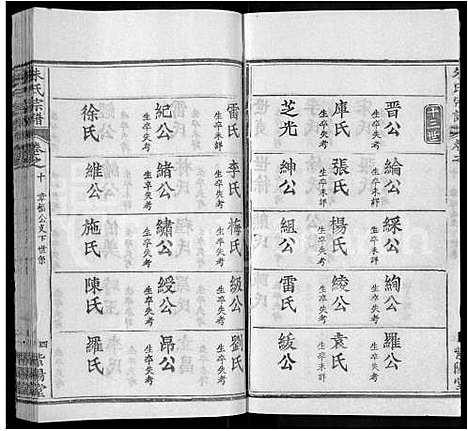 十三世
晋公 生卒失考 綸公 生卒未詳 綵公 生卒未詳 絢公 生卒失考 羅公 生卒失考
庫氏 生卒未詳 張氏 生卒失考 楊氏 生卒失考 綾公 生卒失考 袁氏 生卒失考
芝光 紳公 組公 雷氏 綏公
雷氏 生卒未詳 李氏 生卒失考 梅氏 生卒失考 級公 生卒失考 劉氏 生卒失考
紀公 生卒未詳 緒公 生卒失考 繡公 生卒失考 綬公 生卒失考 昂公 生卒失考
徐氏 維公 施氏 陳氏 羅氏
朱氏宗譜 卷之十 公支下世系 四 紫陽堂